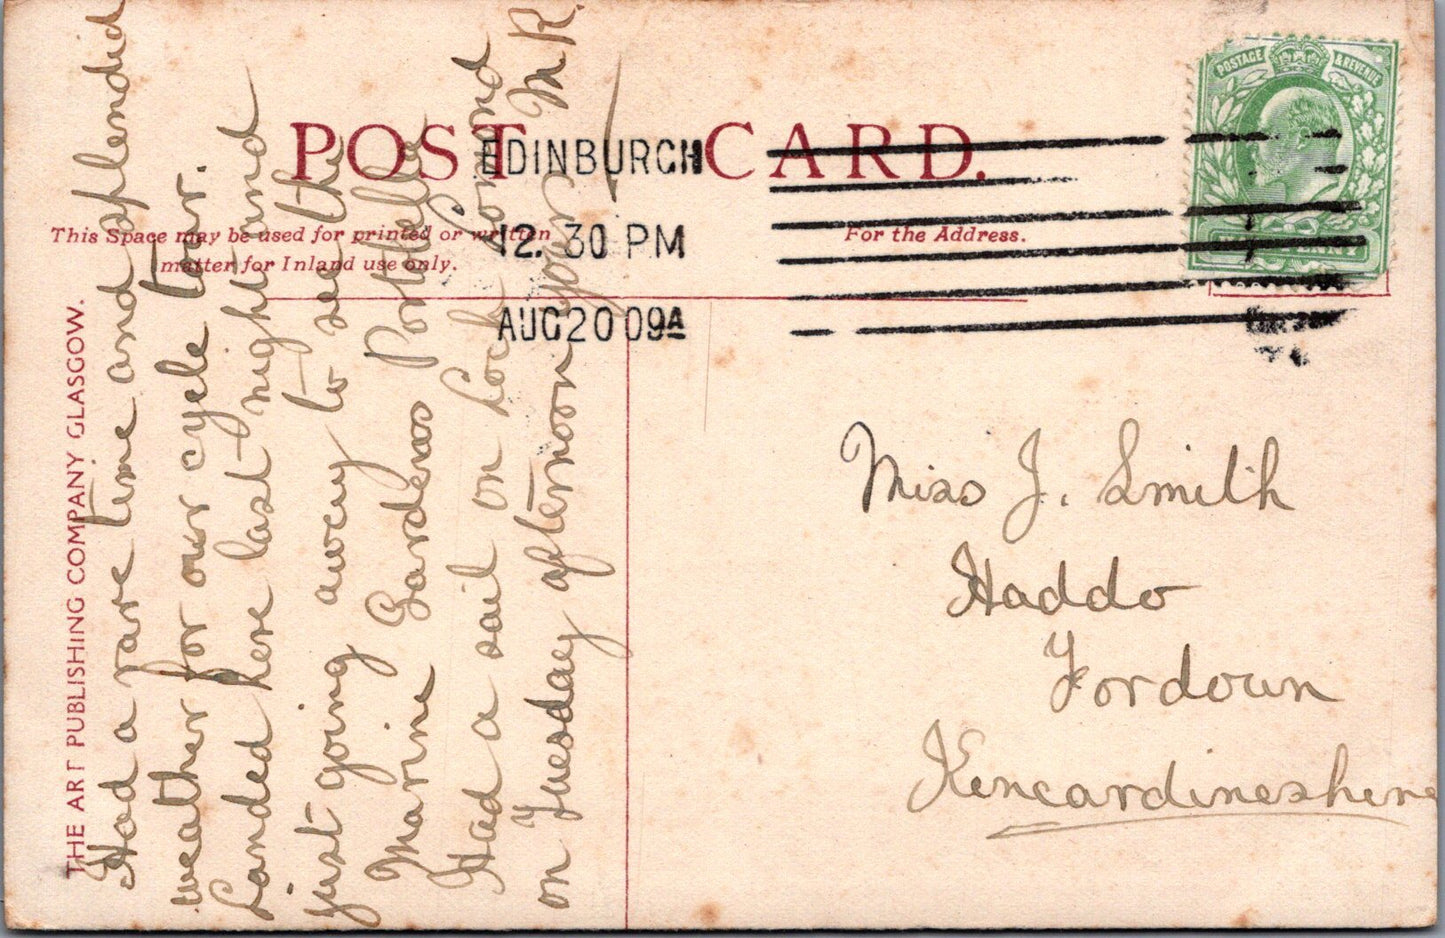 POST CARD.
EDINBURGH
12. 30 PM
AUG 20 09A
POSTAGE & REVENUE
HALFPENNY
This Space may be used for printed or written
matter for Inland use only.
For the Address.
THE ART PUBLISHING COMPANY GLASGOW.
Had a rare time and splendid
weather for our cycle tour.
Landed here last night and
just going away to see the
Marine Gardens Portobello
Had a sail on Loch Lomond
on Tuesday afternoon yours M.R.
Miss J. Smith
Haddo
Fordoun
Kencardineshire